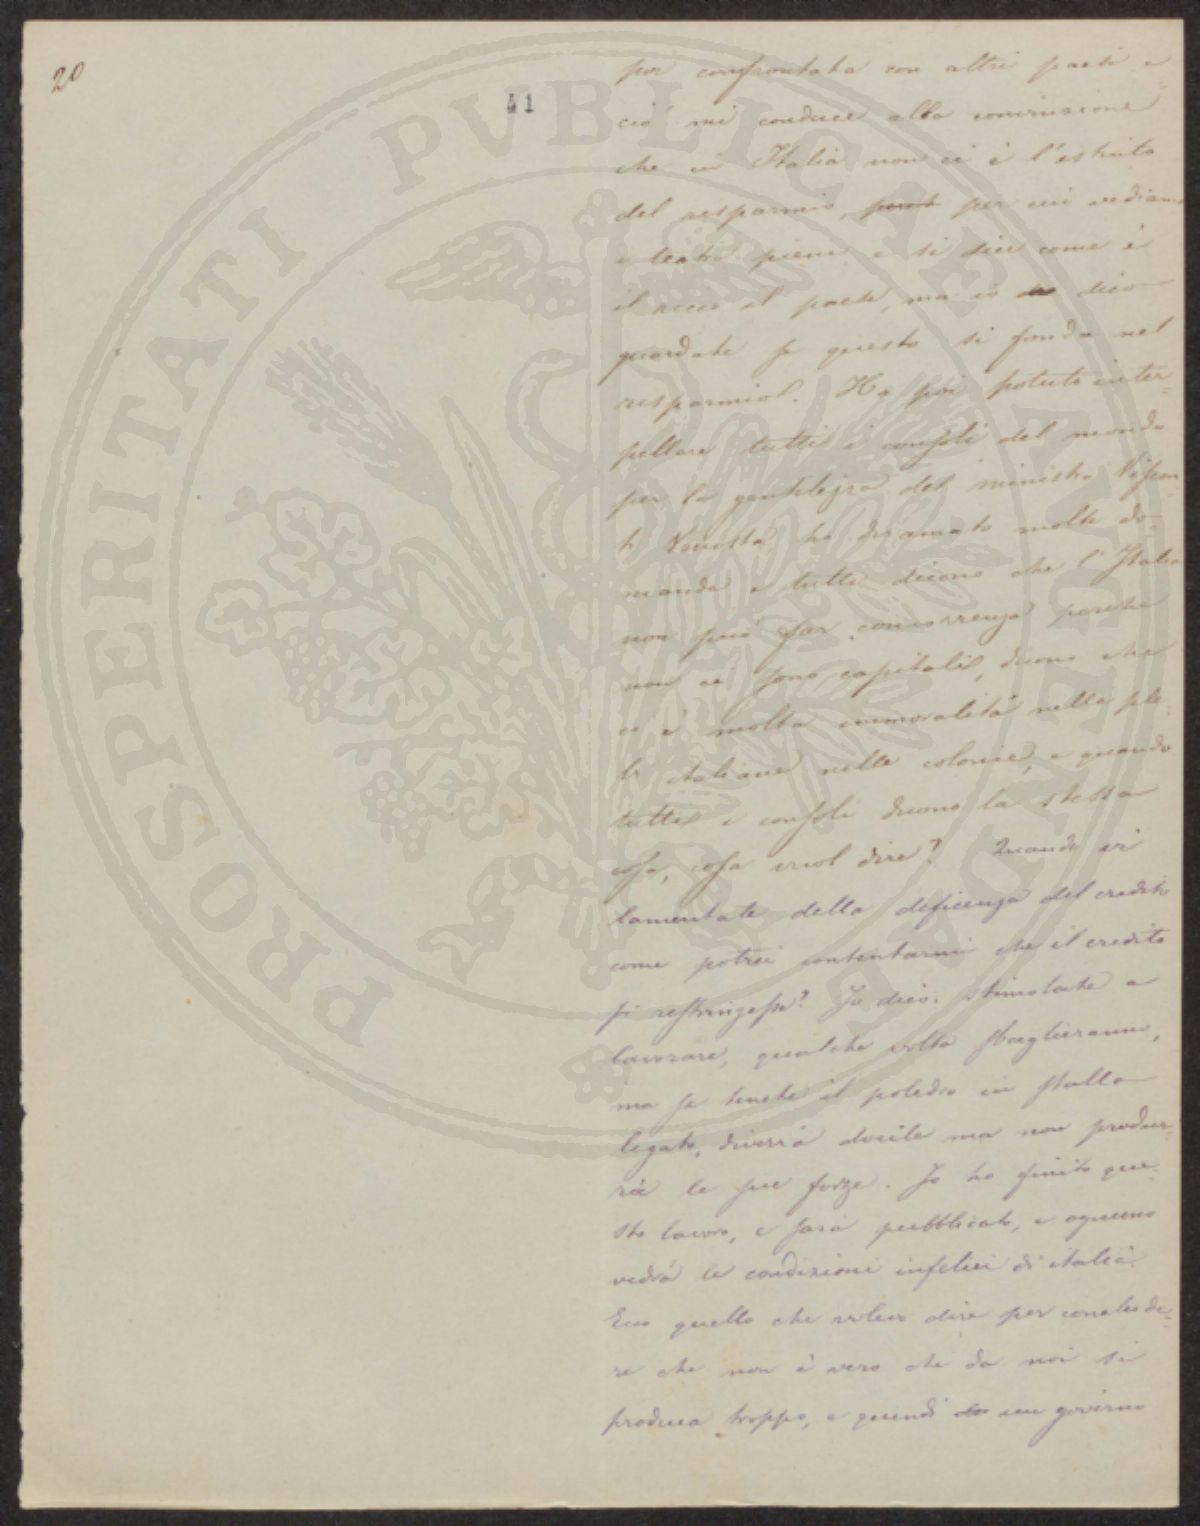 20
41
PROSPERITATI PVBLICAE AVGENDAE
poi confrontata con altri paesi e
ciò mi conduce alla convinzione
che in Italia non ci è l'istinto
del risparmio, per cui vediamo
i teatri pieni e si dice come è
il ricco il paese, ma io dico
guardate se questo si fonda nel
risparmio. Ho poi potuto inter=
pellare tutti i consoli del mondo
per la gentilezza del ministro Viscon
ti Venosta, ho diramato molte do=
mande e tutti dicono che l'Italia
non può far concorrenza perché
non ci sono capitali, dicono che
ci è molta immoralità nelle
italiane nelle colonie, e quando
tutti i consoli dicono la stessa
cosa, cosa vuol dire? Quando vi
lamentate della deficenza del credito
come potrei contentarmi che il credito
si restringesse? Io dico: stimolate a
lavorare, qualche volta sbaglieranno,
ma se tenete il poledro in stalla
legato, diverrà docile ma non produr=
rà le sue forze. Io ho finito que=
sto lavoro, e sarà pubblicato, e ognuno
vedrà le condizioni infelici di italia.
Ecco quello che volevo dire per conclude=
re che non è vero che da noi si
produca troppo, e quindi un governo